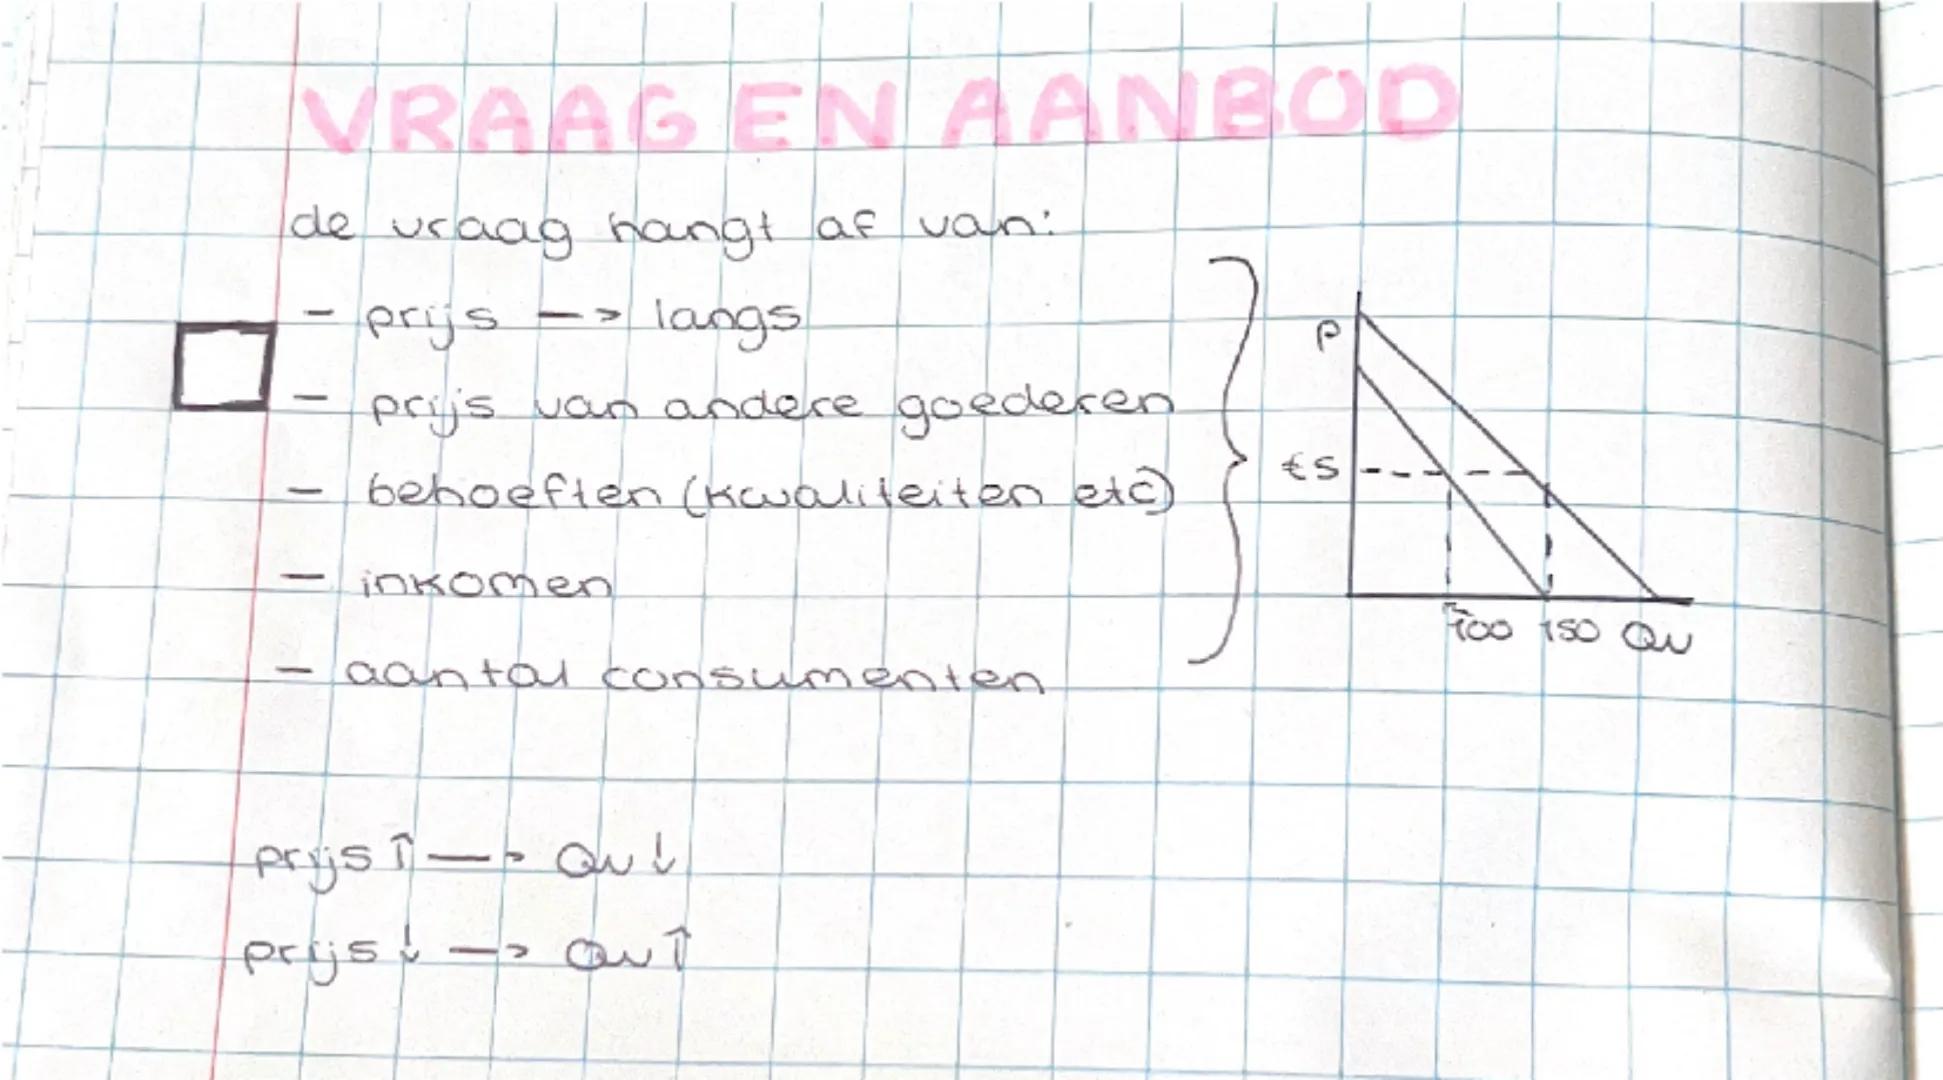 VRAAG EN AANBOD
de vraag hangt af van:
- prijs -> langs
- prijs van andere goederen
- behoeften (kwaliteiten etc)
- inkomen
- aantal consumenten
P
€5
100 150 Qv
prijs ↑ -> Qv ↓
prijs ↓ -> Qv ↑